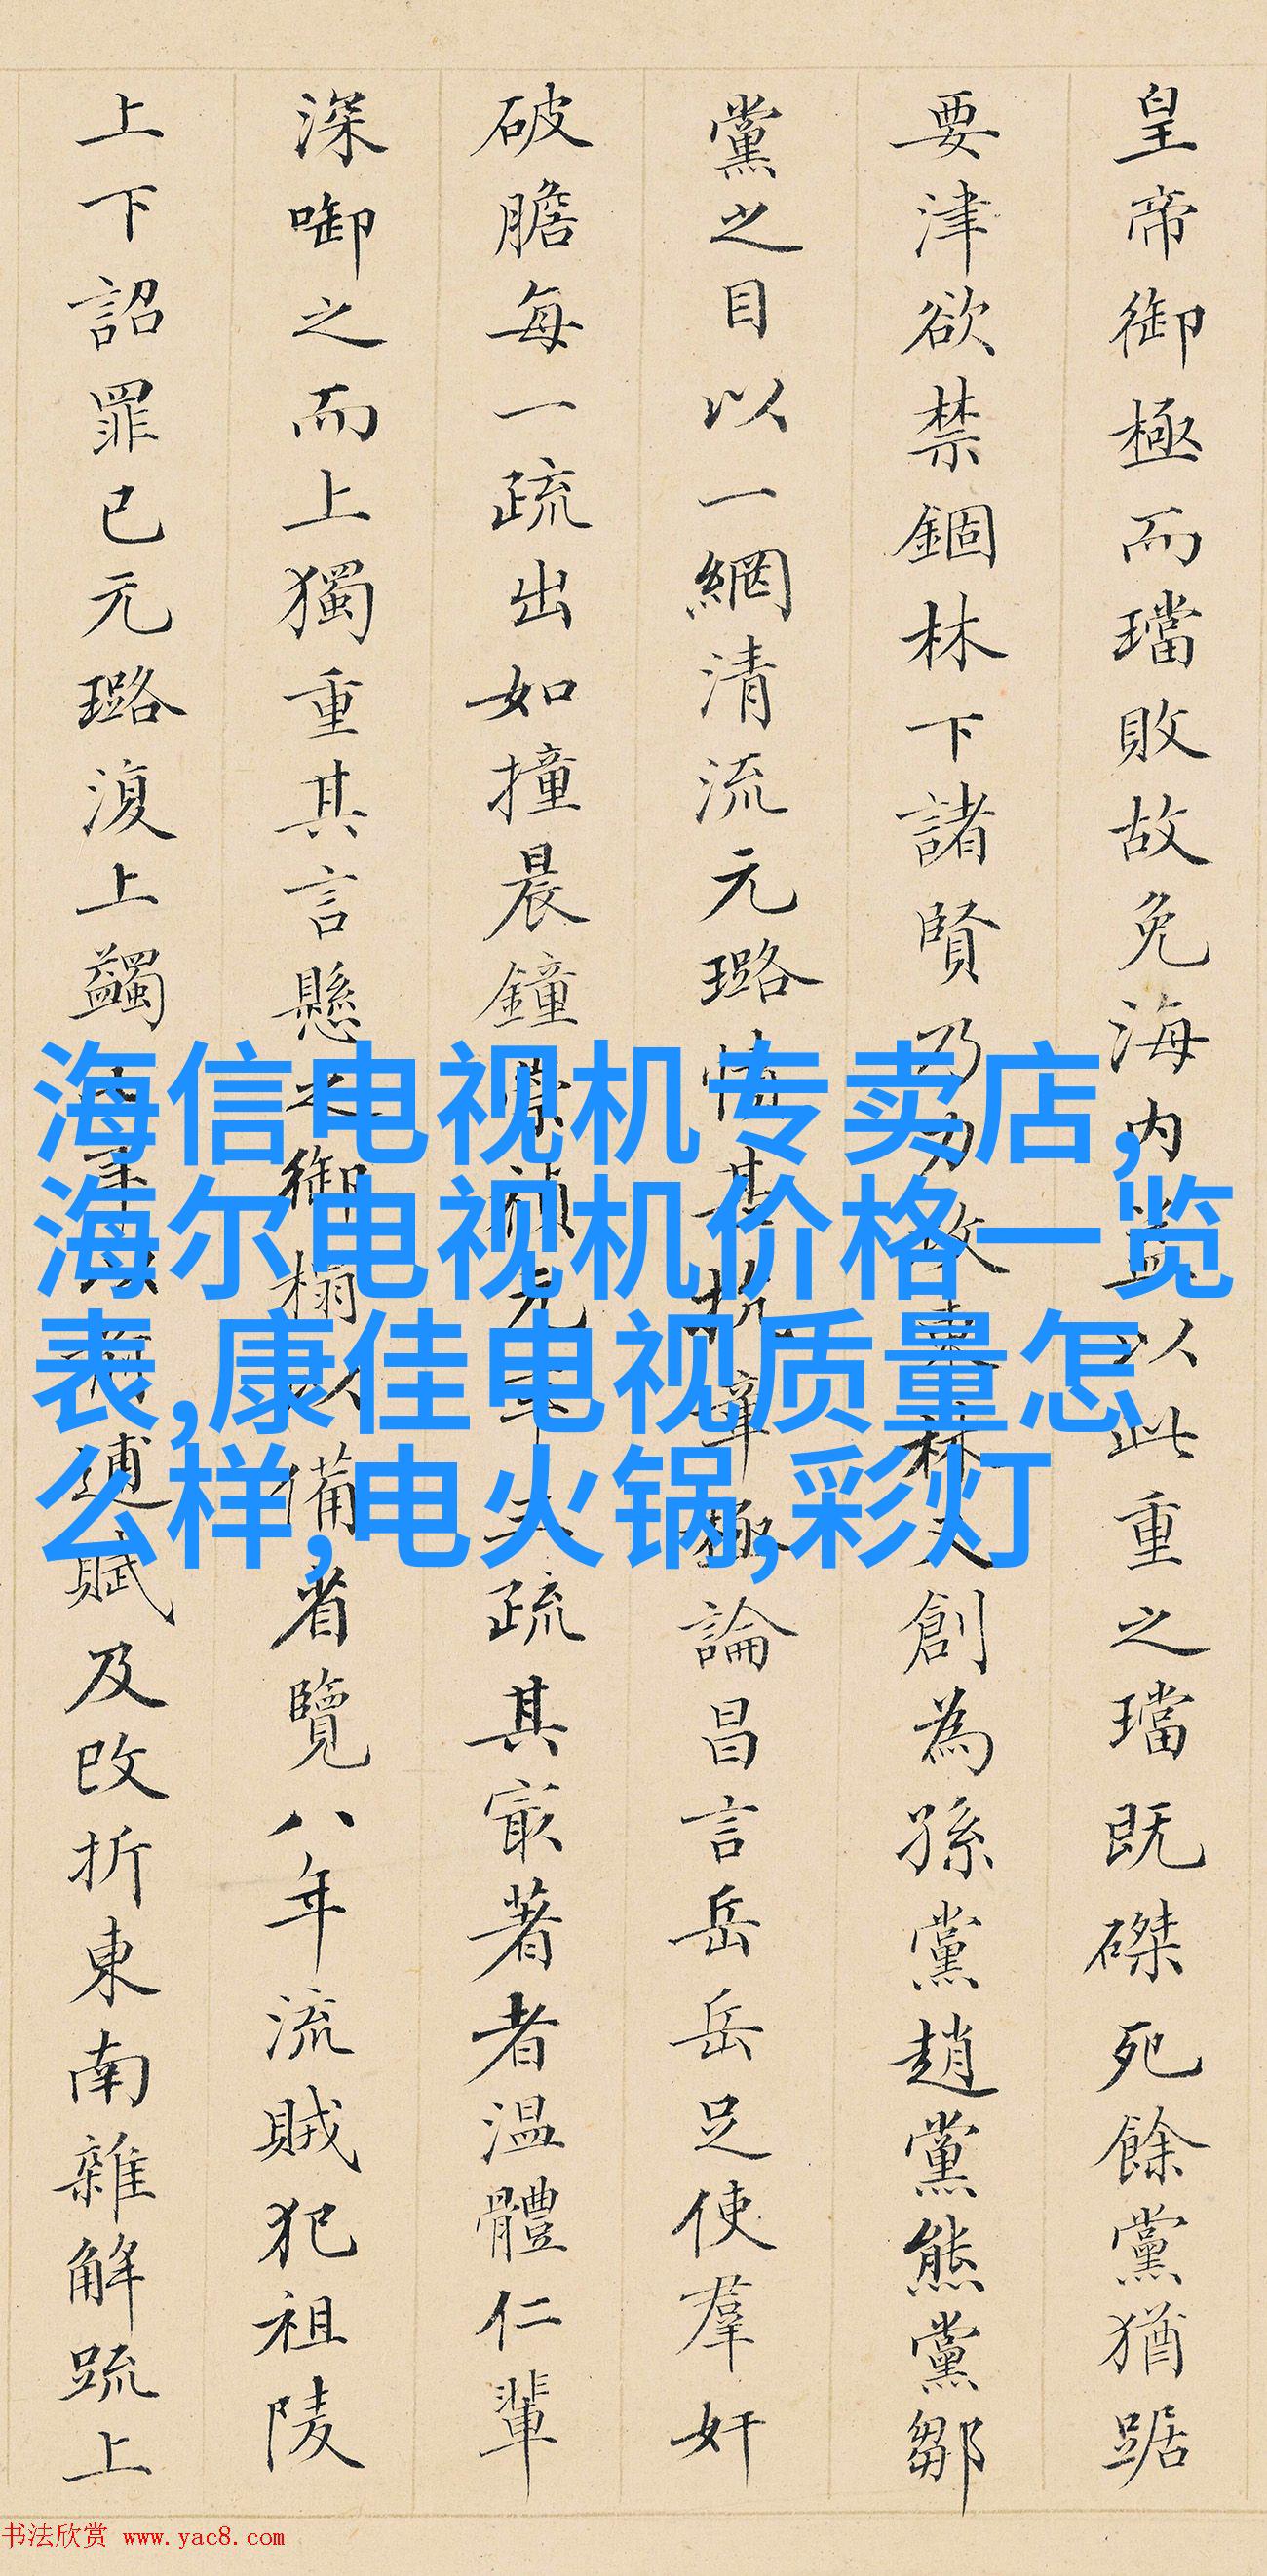 皇帝御極而璫敗故免海内以此重之璫既磔死餘黨猶踞
要津欲禁錮林下諸賢乃力攻東林又創為孫黨趙黨熊黨鄒
黨之目以一網清流元璐抗章極論昌言岳岳足使羣奸
破膽每一疏出如撞晨鐘崇禎元年三疏其㝡著者温體仁輩
深啣之而上獨重其言懸之御榻以備省覽八年流賊犯祖陵
上下詔罪已元璐復上蠲以前逋賦及改折東南雜解疏上
海信电视机专卖店,
海尔电视机价格一览
表,康佳电视质量怎
么样,电火锅,彩灯
书法欣赏 www.yac8.com